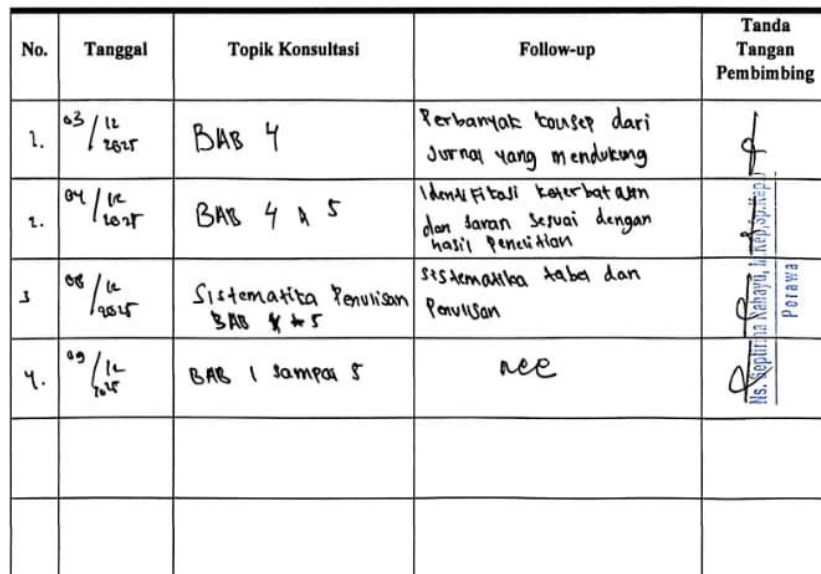 No.
Tanggal
Topik Konsultasi
Follow-up
Tanda
Tangan
Pembimbing
1.
03/12
2025
BAB 4
Perbanyak konsep dari
Jurnal yang mendukung
2.
04/12
2025
BAB 4 & 5
Identifikasi keterbatasan
dan saran sesuai dengan
hasil penelitian
3
08/12
2025
Sistematika Penulisan
BAB 5
sistematika tabel dan
Penulisan
4.
09/12
2025
BAB 1 sampai 5
Acc
Ns.
Rahayu,
Perawa